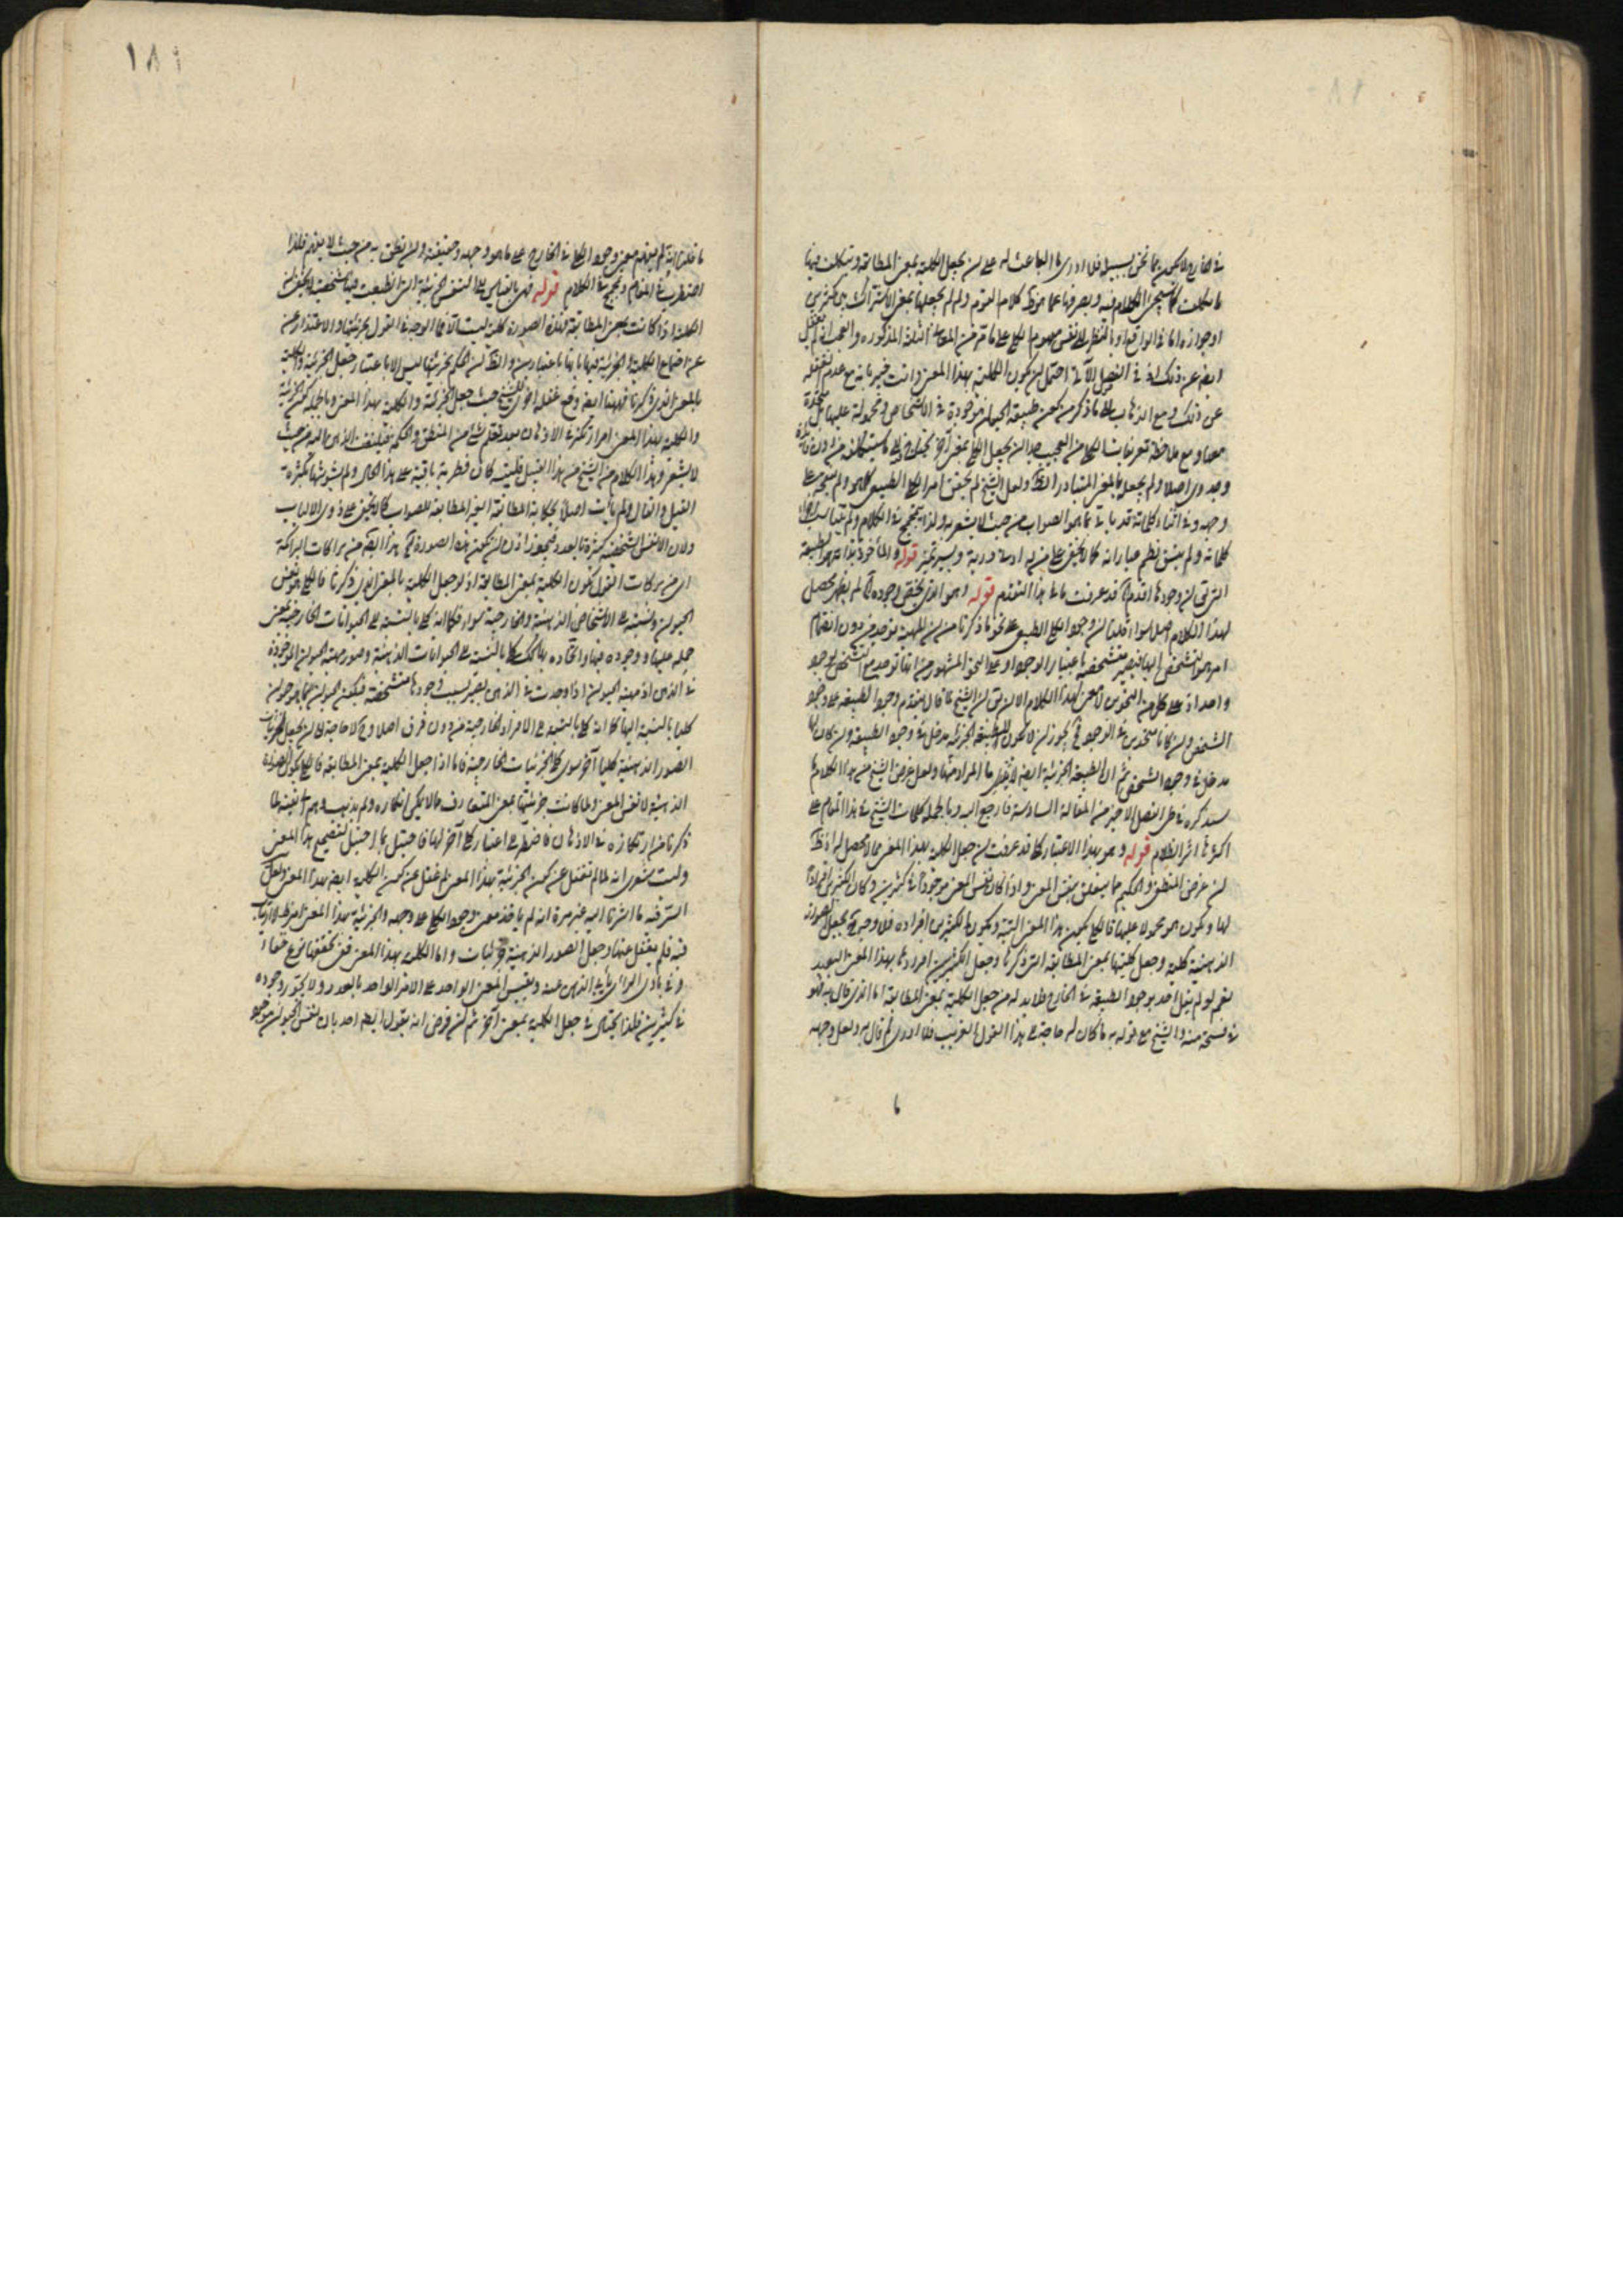 في الخارج لا يكون مما نحن بسبيله فلا ادري ما الباعث له على ان يجعل الكلية بمعنى المطابقة ويتكلف فيها
ما تكلف كما سيجئ الكلام فيه ويصرفها عما هو ظ كلام القوم ولم لم يجعلها بمعنى الاشتراك بين كثيرين
او جوازه اما في الواقع او بالنظر الى نفس مفهوم الكلي على ما مر من المعاني الثلثة المذكورة والعجب انه لم يغفل
ايض عن ذلك اذ في الفصل الآتي احتمل ان يكون الكلية بهذا المعنى وانت خبير بانه مع عدم تغفله
عن ذلك ومع الذهاب الى ما ذكره من كون طبيعة الحيوان موجودة في الاشخاص ومحمولة عليها متحدة
معها ومع ملاحظة تعريفات الكلي من العجيب جدا ان يجعل الكلي بمعنى آخر
وجدوى اصلا ولم يجعله بالمعنى المتبادر الظ ولعل الشيخ لم يحقق امر الكلي الطبيعي كما هو ولم ينقحه على
وجهه وفي اثناء كلماته قد يأتي بما هو الصواب من حيث لا يشعر به ولذا يتلجلج في الكلام ولم يتناسب اجزاء
كلماته ولم يتسق نظم عباراته كما لا يخفى على من له ادنى دربة ويسير تميز قوله والمأخوذ بذاته هو الطبيعة
التي يق ان وجودها اقدم آه قد عرفت ما في هذا التقدم قوله وهو الذي يخص وجوده آه لم يظهر محصل
لهذا الكلام اصلا سواء قلنا ان وجود الكلي الطبيعي على نحو ما ذكرنا من ان المهية توجد من دون انضمام
امر هو التشخص اليها فيصير متشخصة باعتبار الوجود او على النحو المشهور من انها توجد مع التشخص بوجود
واحد اذ على كل من النحوين لا معنى لهذا الكلام الا ان يق ان الشيخ ما قال بتقدم وجود الطبيعة على وجود
الشخص وان كانا متحدين في الوجود فح يجوز ان لا يكون للطبيعة الجزئية مدخل في وجود الطبيعة وان كان لها
مدخل في وجود الشخص ثم ان الطبيعة الجزئية ايض لا يظهر ما المراد منها ولعل غرض الشيخ من هذا الكلام ما
سيذكره في الفصل الاخير من المقالة السادسة فارجع اليه وبالجملة كلمات الشيخ في هذا المقام على
اكثرها اثر الظلام قوله وهو بهذا الاعتبار كلي قد عرفت ان جعل الكلية بهذا المعنى مما لا محصل له اذ ظ
ان غرض المنطقي والحكيم مما يتعلق بنفس المعنى واذا كان نفس المعنى موجودا في كثيرين وكان الكثيرين افرادا
لها ويكون هو محمولا عليها فالكلي يكون هذا المعنى البتة ويكون الكثيرين افراده فلا وجه لان يجعل الصورة
الذهنية كلية وجعل كليتها بمعنى المطابقة التي ذكرنا وجعل الكثيرين افرادها بهذا المعنى البعيد
نعم لو لم يقل احد بوجود الطبيعة في الخارج فلا بد له من جعل الكلية بمعنى المطابقة اما الذي قال به فهو
في فسحة منه والشيخ مع قوله به ما كان له حاجة الى هذا القول الغريب فلا ادري لم قال به ولعل وجهه
ما
١٨١
ما قلنا انه لم يفهم معنى وجود الكلي في الخارج على ما هو وجهه وحقيقته وان نطق به من حيث لا يفهم فلذا
اضطرب في المقام وتلجلج في الكلام قوله فهي بالقياس الى النفس الجزئية التي انطبعت فيها شخصية لا يخفى ان
الكلية اذا كانت بمعنى المطابقة فهذه الصورة كلية ليست الا فما الوجه في القول بجزئيتها والاعتذار عن
عن اجتماع الكلية والجزئية فيها بانها باعتبارين والظ ان الحكم بجزئيتها ليس الا باعتبار جعل الجزئية والكلية
بالمعنى الذي ذكرنا فههنا ايض وقع غفلة اخرى للشيخ حيث جعل الجزئية والكلية بهذا المعنى وبالجملة كون الجزئية
والكلية بهذا المعنى امر ارتكز في الاذهان بعد تعلم شئ من المنطق والحكمة فيلتفت الذهن اليه من حيث
لا يشعر وهذا الكلام من الشيخ من هذا القبيل فليته كان فطرته باقية على هذا الحال ولم يشوشها بكثرة
القيل والقال ولم يأت اصلا بحكاية المطابقة الغير المطابقة للصواب كما لا يخفى على ذوي الالباب
ولان الانفس الشخصية كثيرة بالعدد فيجوز اذن ان يكون هذه الصورة آه هذا ايض من بركات البركة
اي من بركات القول بكون الكلية بمعنى المطابقة اذ لو جعل الكلية بالمعنى الذي ذكرنا فالكلي هو نفس
الحيوان ونسبته الى الاشخاص الذهنية والخارجية سواء فكما انه كلي بالنسبة الى الحيوانات الخارجية بمعنى
حمله عليها ووجوده فيها واتحاده بها كك كلي بالنسبة الى الحيوانات الذهنية وصور مهية الحيوان الموجودة
في الذهن اذ مهية الحيوان اذا وجدت في الذهن يصير بسبب وجودها متشخصة فيكون الحيوان بما هو حيوان
كليا بالنسبة اليها كما انه كلي بالنسبة الى الافراد الخارجية من دون فرق اصلا وح لا حاجة الى ان يجعل لجزئيات
الصور الذهنية كليا آخر سوى كلي الجزئيات الخارجية فاما اذا جعل الكلية بمعنى المطابقة فالكلي يكون الصورة
الذهنية لا نفس المعنى ولما كانت جزئيتها بمعنى المتعارف مما لا يمكن انكاره ولم يذهب وهمه ايضا لما
ذكرنا من ارتكازه في الاذهان فاضطر الى اعتبار كلي آخر لها فاحتيل بما احتيل لتصحيح هذا المعنى
وليت شعري انه لما لم تغفل عن كون الجزئية بهذا المعنى لم غفل عن كون الكلية ايض بهذا المعنى ولعل
السر فيه ما اشرنا اليه غير مرة انه لم يأخذ معنى وجود الكلي على وجهه والجزئية بهذا المعنى امر ظ لا ارتياب
فيه فلم يغفل عنها وجعل الصور الذهنية جزئيات واما الكلية بهذا المعنى ففي تحققها نوع خفاء
وفي بادي الراي يأبى الذهن عنه ويقيس المعنى الواحد على الامر الواحد بالعدد ولا يجوز وجوده
في كثيرين فلذا يحتال في جعل الكلية بمعنى آخر ثم ان فرض انه يقول ايض احد بان نفس الحيوان موجود